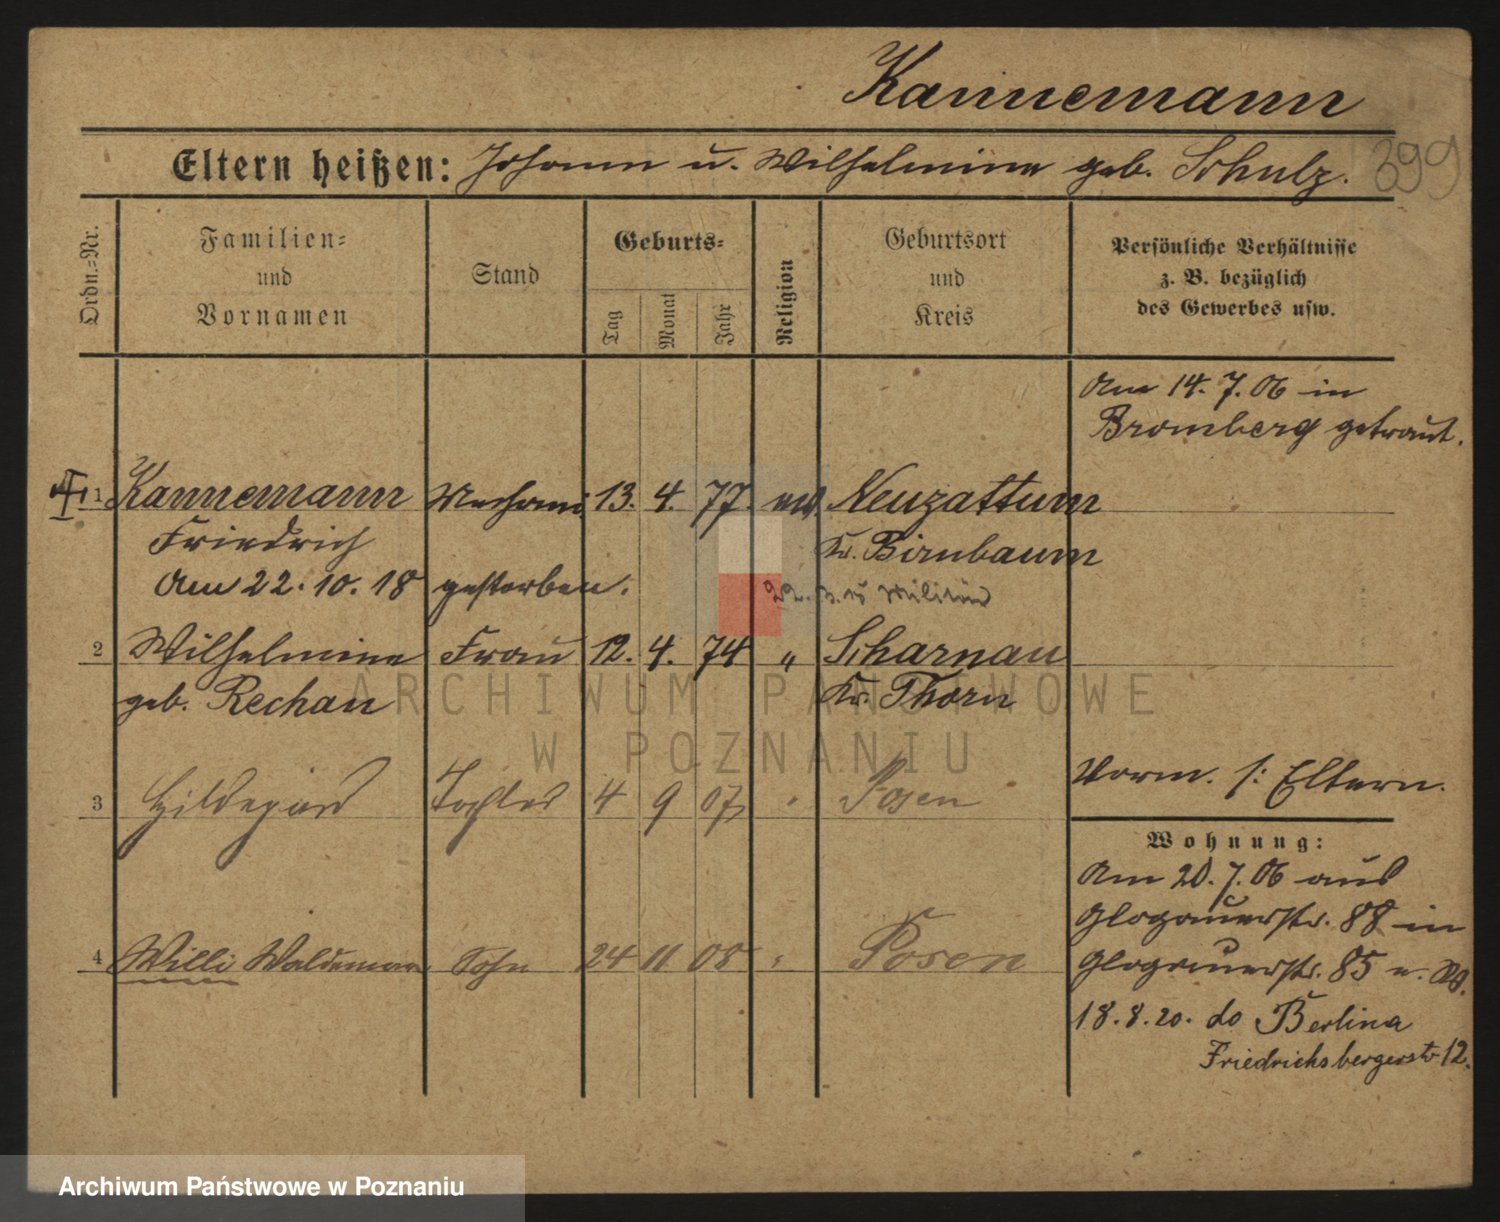 Kannemann
Eltern heißen: Johann u. Wilhelmine geb. Schulz.
399
Ordn.-Nr.
Familien- und Vornamen
Stand
Geburts-
Tag
Monat
Jahr
Religion
Geburtsort und Kreis
Persönliche Verhältnisse
z. B. bezüglich
des Gewerbes usw.
Am 14. 7. 06 in
Bromberg getraut.
1 Kannemann Mechani. 13. 4. 77. ev. Neuzattum
Friedrich Kr. Birnbaum
Am 22. 10. 18 gestorben.
22. 3. 15 Militär
2 Wilhelmine Frau 12. 4. 74 " Scharnau
geb. Rechau Kr. Thorn
3 Hildegard Tochter 4 9 07 Posen
Vorm. s: Eltern.
Wohnung:
Am 20. 7. 06 aus
Glogauerstr. 88 in
Glogauerstr. 85 u. W.
4 Willi Waldemar Sohn 24 11 08 Posen
18. 8. 20. do Berlina
Friedrichsbergerstr 12.
ARCHIWUM PAŃSTWOWE
W POZNANIU
Archiwum Państwowe w Poznaniu